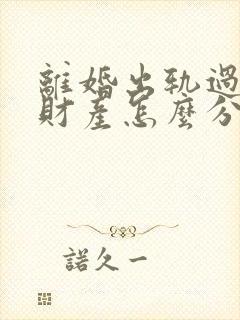 離婚出軌過
財產怎麼分
諾久一